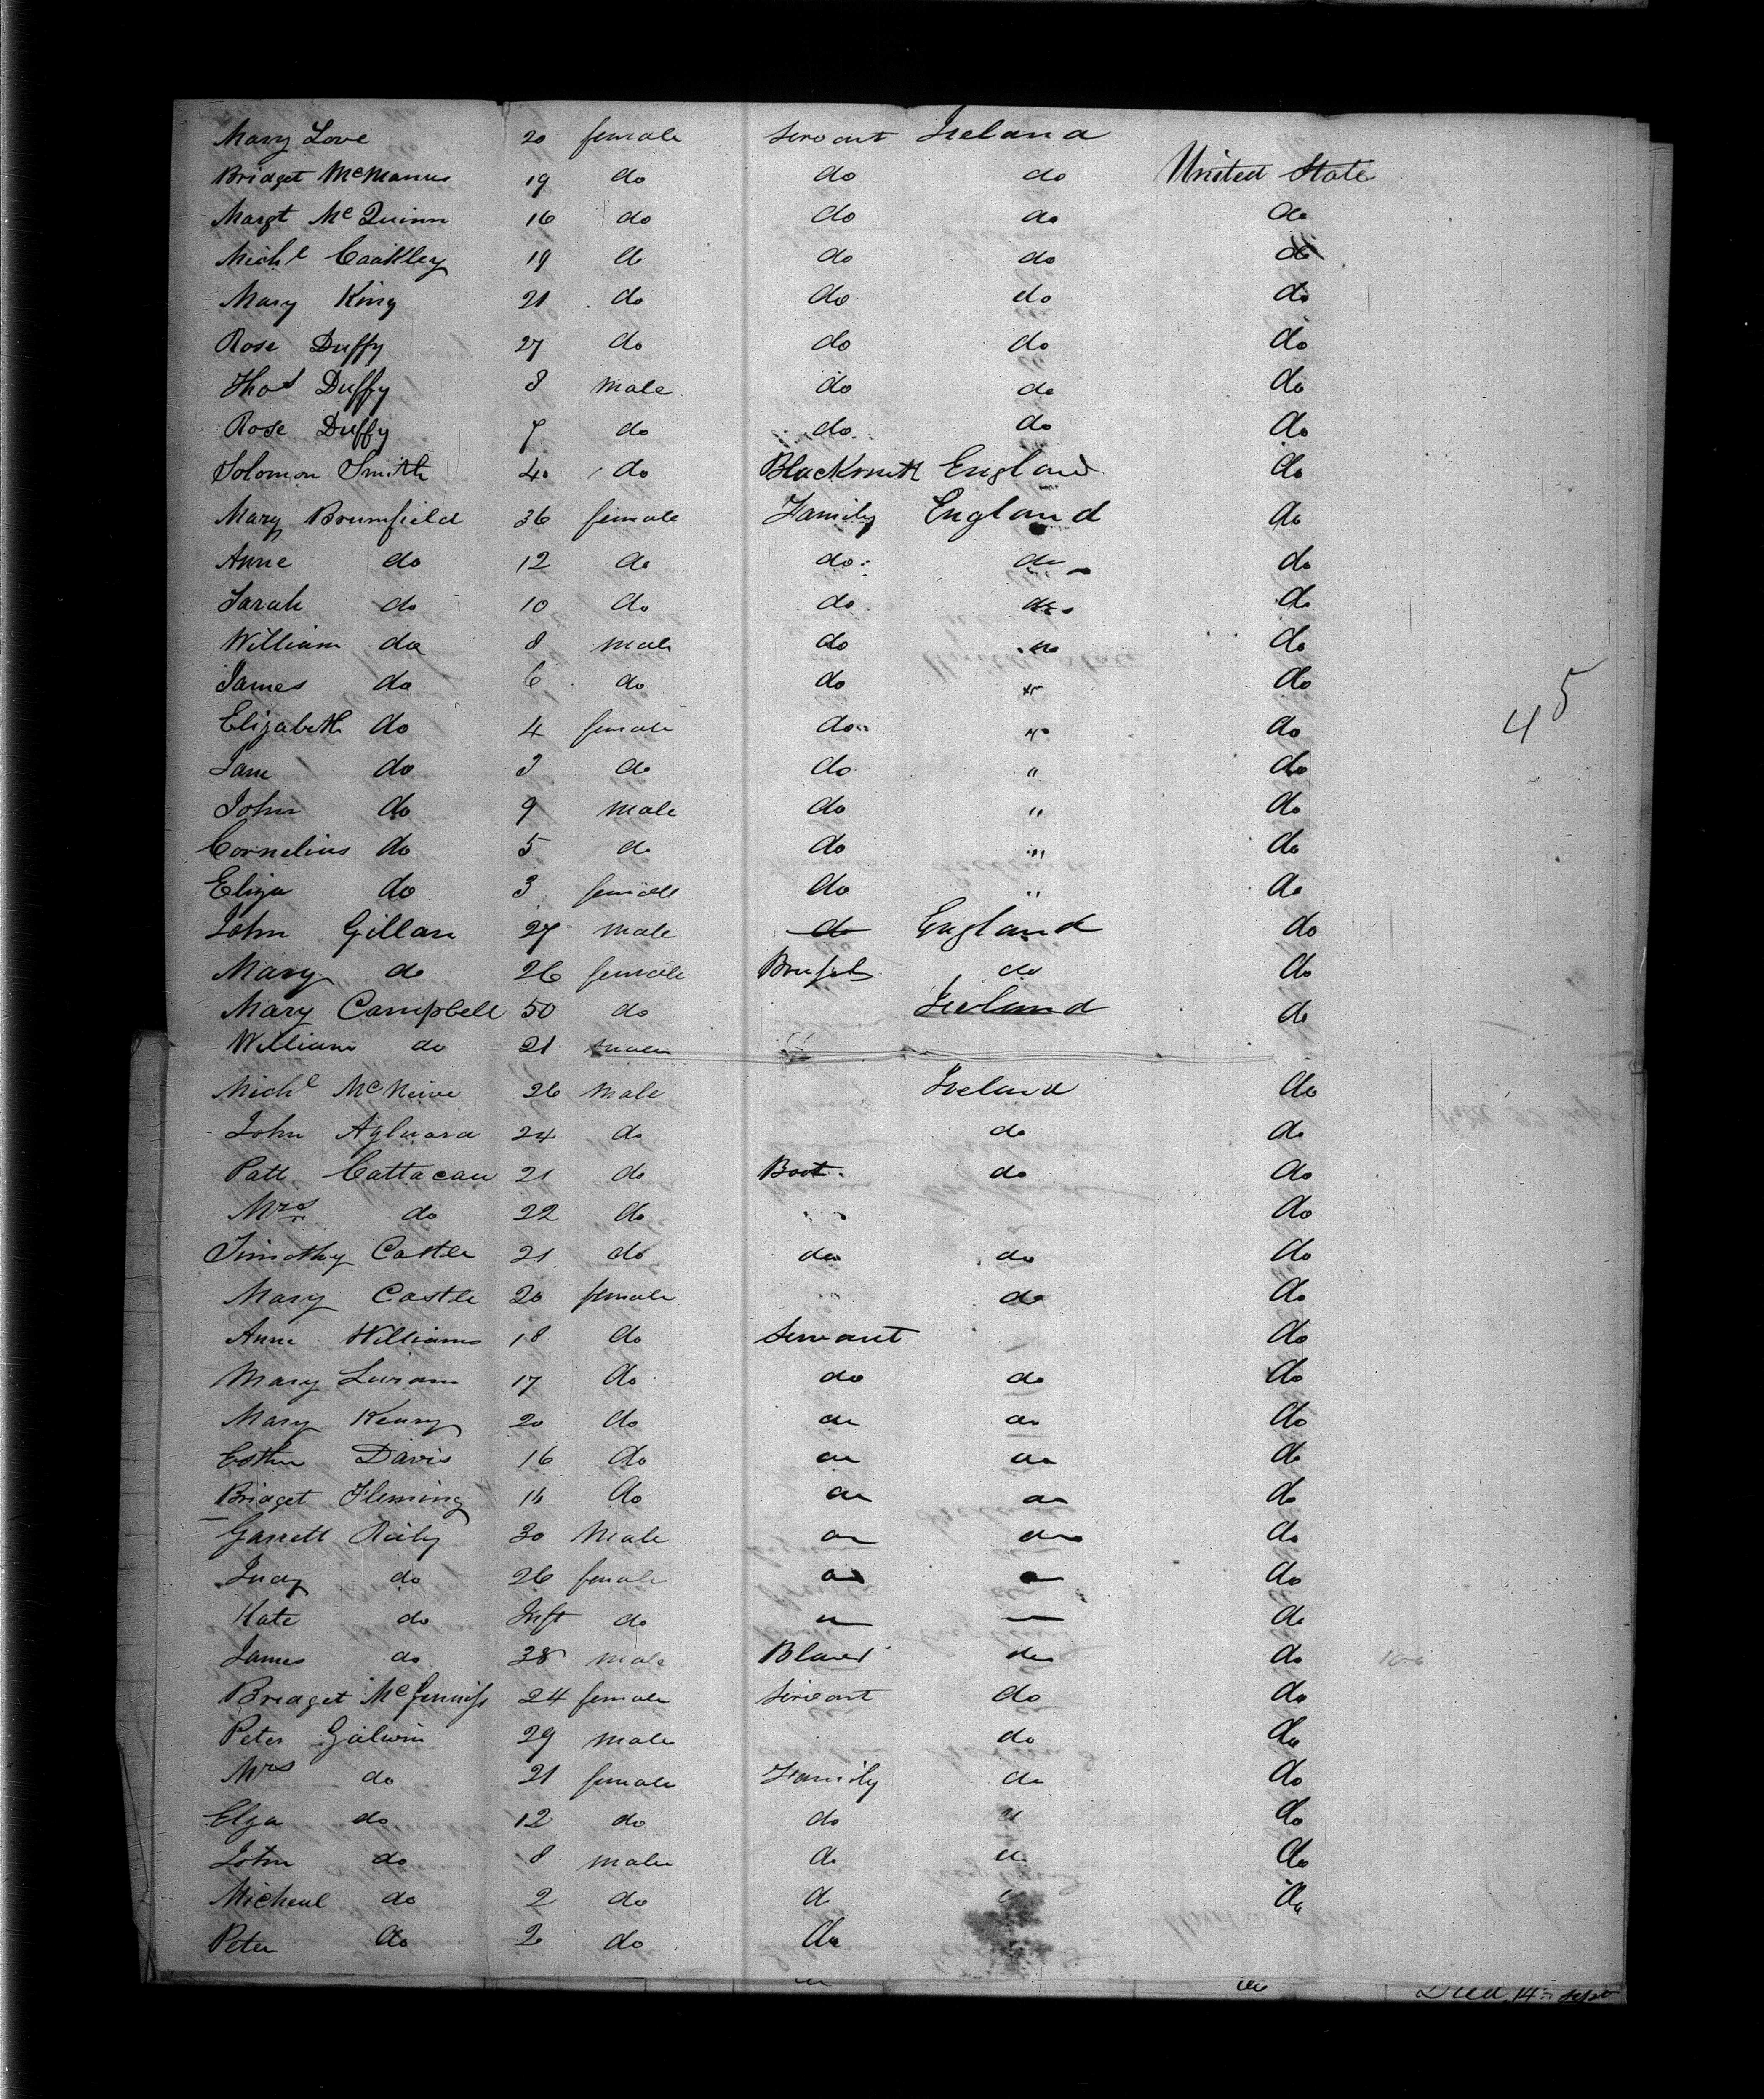 Mary Love 20 female Servant Ireland
Bridget McManus 19 do do do United State
Margt McQuinn 16 do do do do
Michl Coakley 19 do do do do
Mary King 21 do do do do
Rose Duffy 27 do do do do
Thos Duffy 8 male do do do
Rose Duffy 7 do do do do
Solomon Smith 40 do Blacksmith England do
Mary Brumfield 36 female Family England do
Anne do 12 do do do do
Sarah do 10 do do do do
William do 8 male do do do
James do 6 do do do
45
Elizabeth do 4 female do do
Jane do 3 do do " do
John do 9 male do " do
Cornelius do 5 do do " do
Eliza do 3 female do " do
John Gillan 27 male do England do
Mary do 26 female do do
Mary Campbell 50 do Ireland do
William do 21 male
Michl 26 male Ireland do
John Aylward 24 do do do
Patt 21 do Boot do do
Mrs do 22 do do
Timothy Castle 21 do do do do
Mary Castle 20 female do do
Anne Williams 18 do Servant do
Mary 17 do do do do
Mary Kenny 20 do do do do
Esther Davis 16 do do do do
Bridget Fleming 16 do do do do
Garrett Raily 30 Male do do do
Judy do 26 female do do
Kate do Inft do do
James do 38 male do do
Bridget McGinniss 24 female Servant do do
Peter Galwin 29 male do do
Mrs do 21 female Family do do
Elza do 12 do do " do
John do 8 male do " do
Micheal do 2 do do " do
Peter do 2 do do
do Died 14th Sept